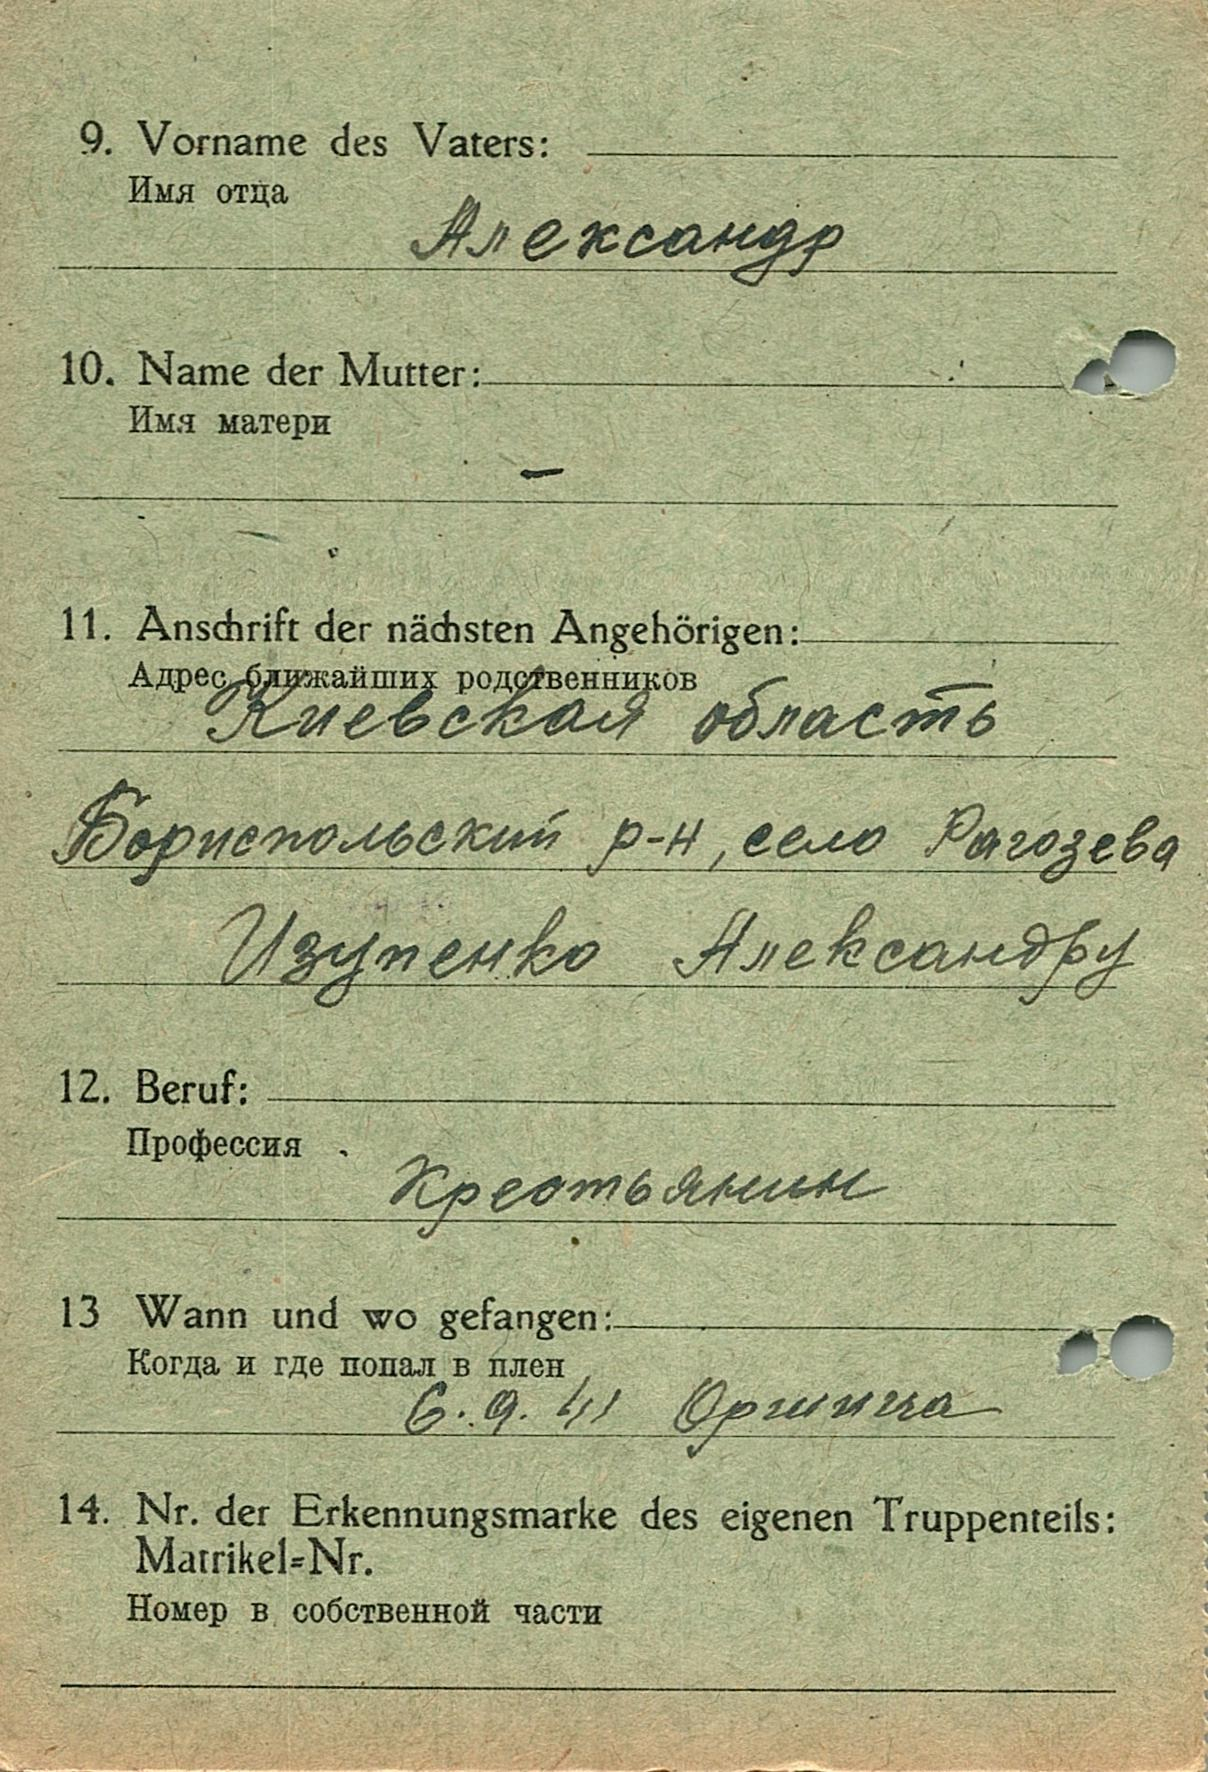 9. Vorname des Vaters:
Имя отца
Александр
10. Name der Mutter:
Имя матери
–
11. Anschrift der nächsten Angehörigen:
Адрес ближайших родственников
Киевская область
Бориспольский р-н, село Рагозева
Изупенко Александру
12. Beruf:
Профессия
Крестьянин
13 Wann und wo gefangen:
Когда и где попал в плен
6.9.41 Оржица
14. Nr. der Erkennungsmarke des eigenen Truppenteils:
Matrikel=Nr.
Номер в собственной части